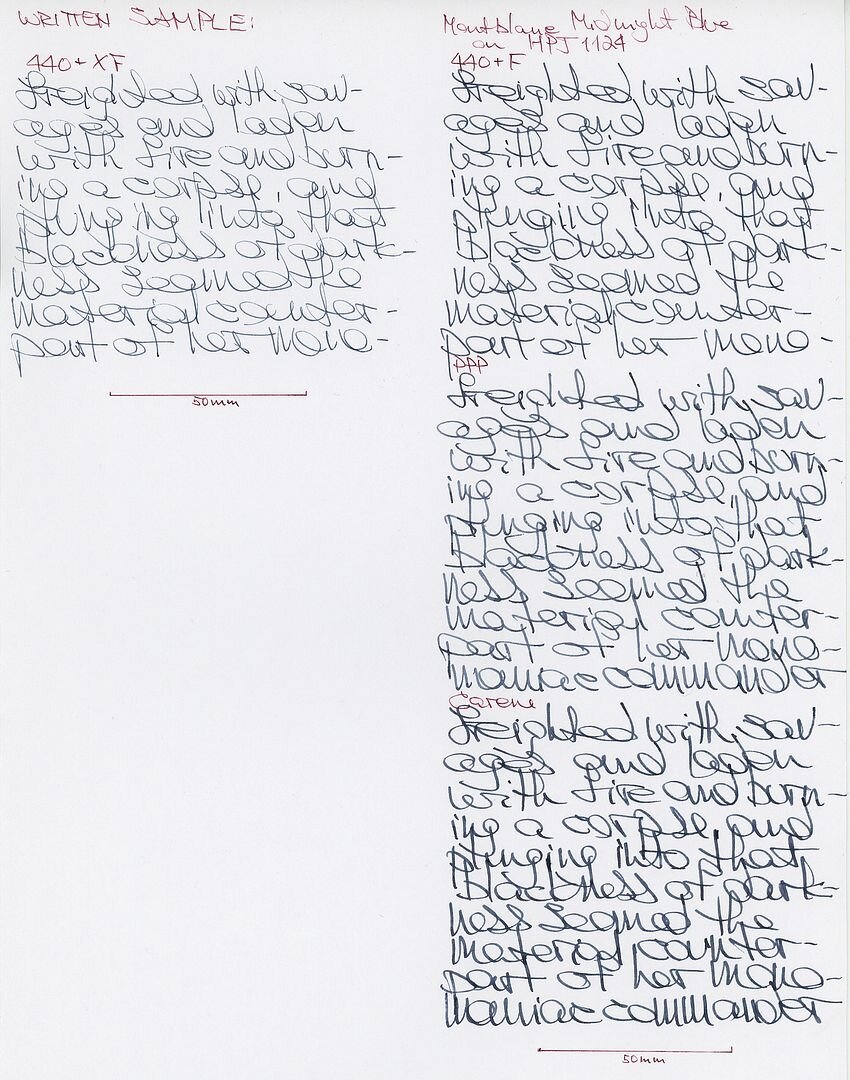 WRITTEN SAMPLE:
440+XF
Freighted with sav-
ages and laden
with fire and burn-
ing a corpse, and
plunging into that
blackness of dark-
ness seemed the
material counter-
part of her mono-
50mm
Montblanc Midnight Blue
on HPJ1124
440+F
Freighted with sav-
ages and laden
with fire and burn-
ing a corpse, and
plunging into that
blackness of dark-
ness seemed the
material counter-
part of her mono-
PPP
Freighted with sav-
ages and laden
with fire and burn-
ing a corpse, and
plunging into that
blackness of dark-
ness seemed the
material counter-
part of her mono-
maniac commander
Carene
Freighted with sav-
ages and laden
with fire and burn-
ing a corpse, and
plunging into that
blackness of dark-
ness seemed the
material counter-
part of her mono-
maniac commander
50mm